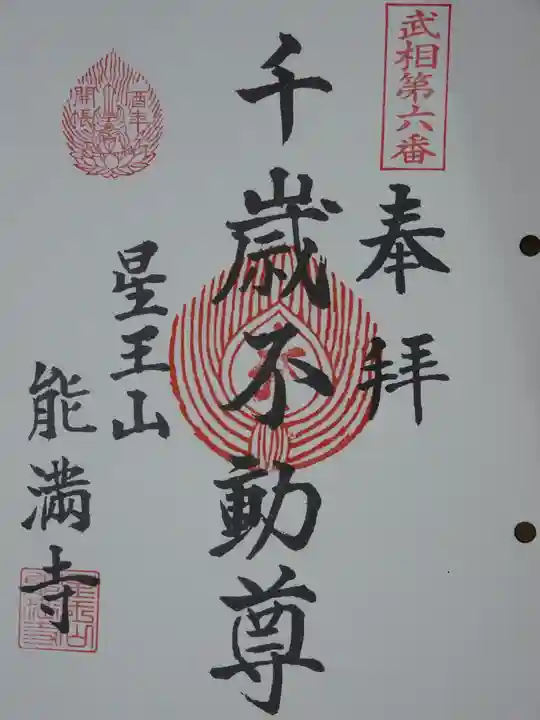 武相第六番
奉拝
千歳不動尊
星王山
能満寺
酉年
開帳